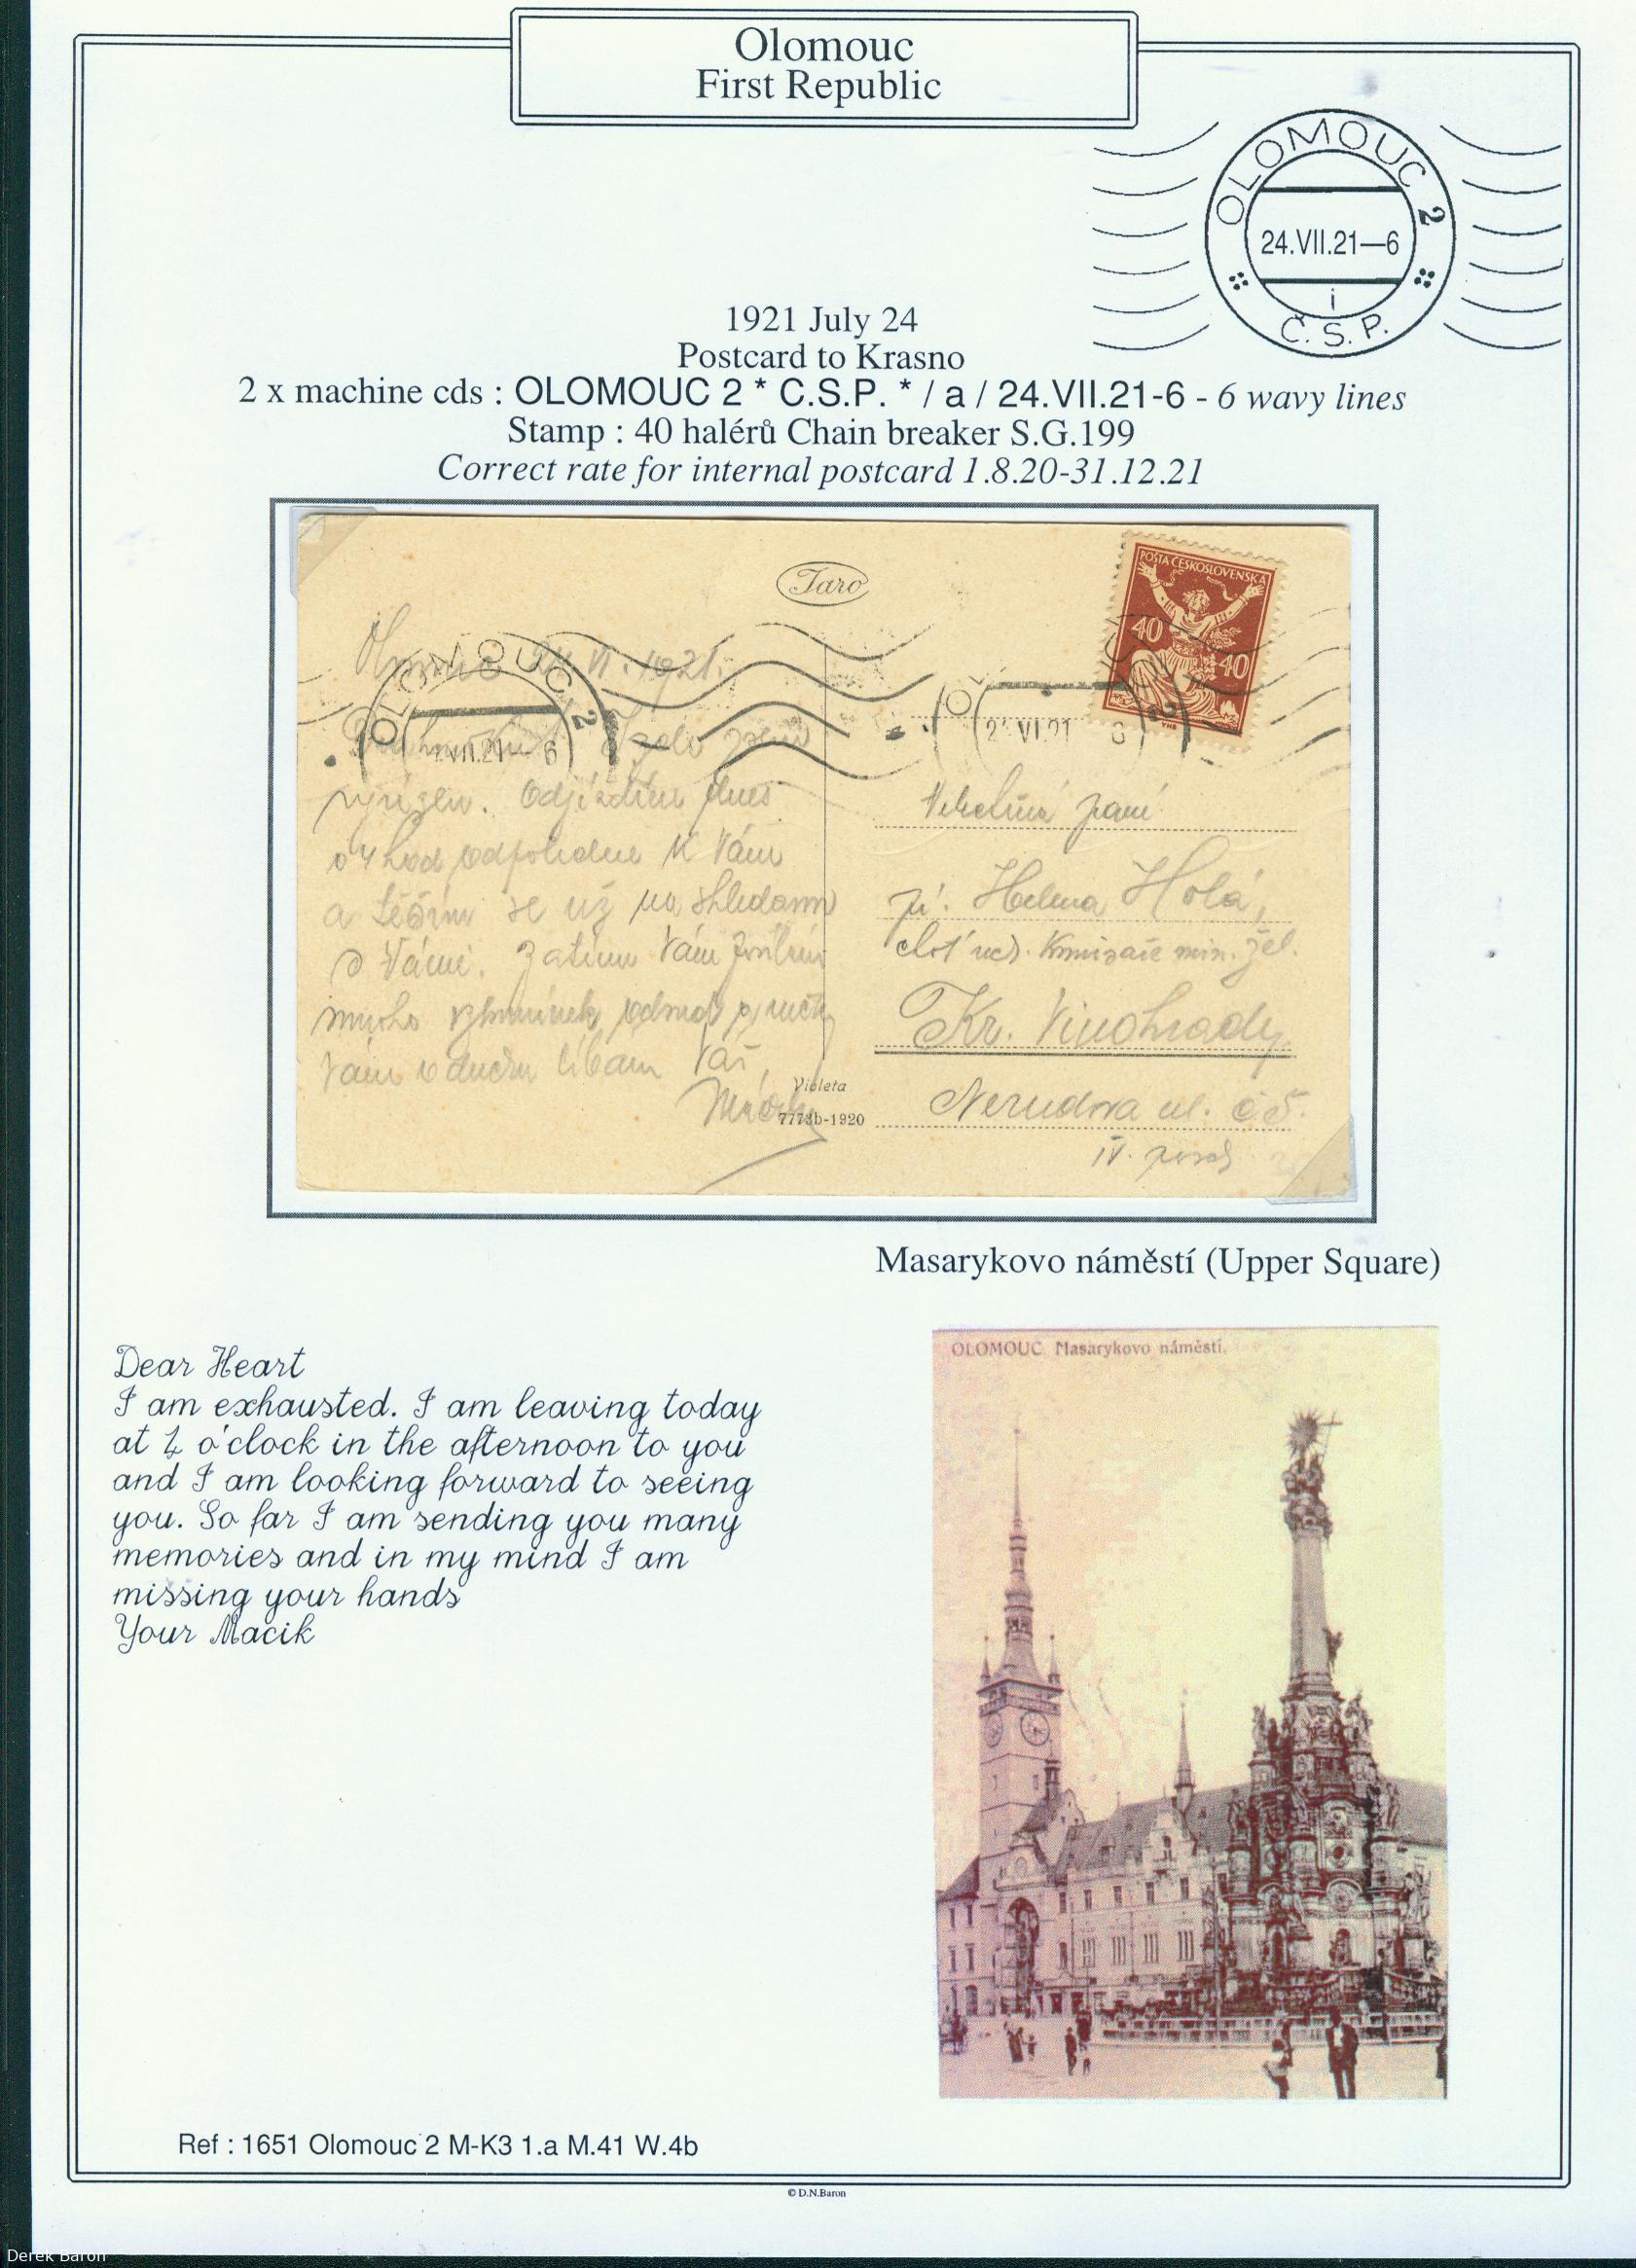 Olomouc
First Republic
OLOMOUC 2
24.VII.21—6
i
Č.S.P.
1921 July 24
Postcard to Krasno
2 x machine cds : OLOMOUC 2 * C.S.P. * / a / 24.VII.21-6 - 6 wavy lines
Stamp : 40 halérů Chain breaker S.G.199
Correct rate for internal postcard 1.8.20-31.12.21
Taro
POŠTA ČESKOSLOVENSKÁ
40
40
OLOMOUC 2
1921.
Odjíždím dnes
o 4 hod odpoledne k Vám
a těším se už na shledanou
s Vámi. Zatím Vám posílám
mnoho vzpomínek
Vám v duchu líbám Váš,
Violeta
7773b-1920
paní
pí. Helena Holá,
Kr. Vinohrady
Nerudova ul. č 5.
IV. posch
Masarykovo náměstí (Upper Square)
OLOMOUC Masarykovo náměstí.
Dear Heart
I am exhausted. I am leaving today
at 4 o'clock in the afternoon to you
and I am looking forward to seeing
you. So far I am sending you many
memories and in my mind I am
missing your hands
Your Macik
Ref : 1651 Olomouc 2 M-K3 1.a M.41 W.4b
© D.N.Baron
Derek Baron